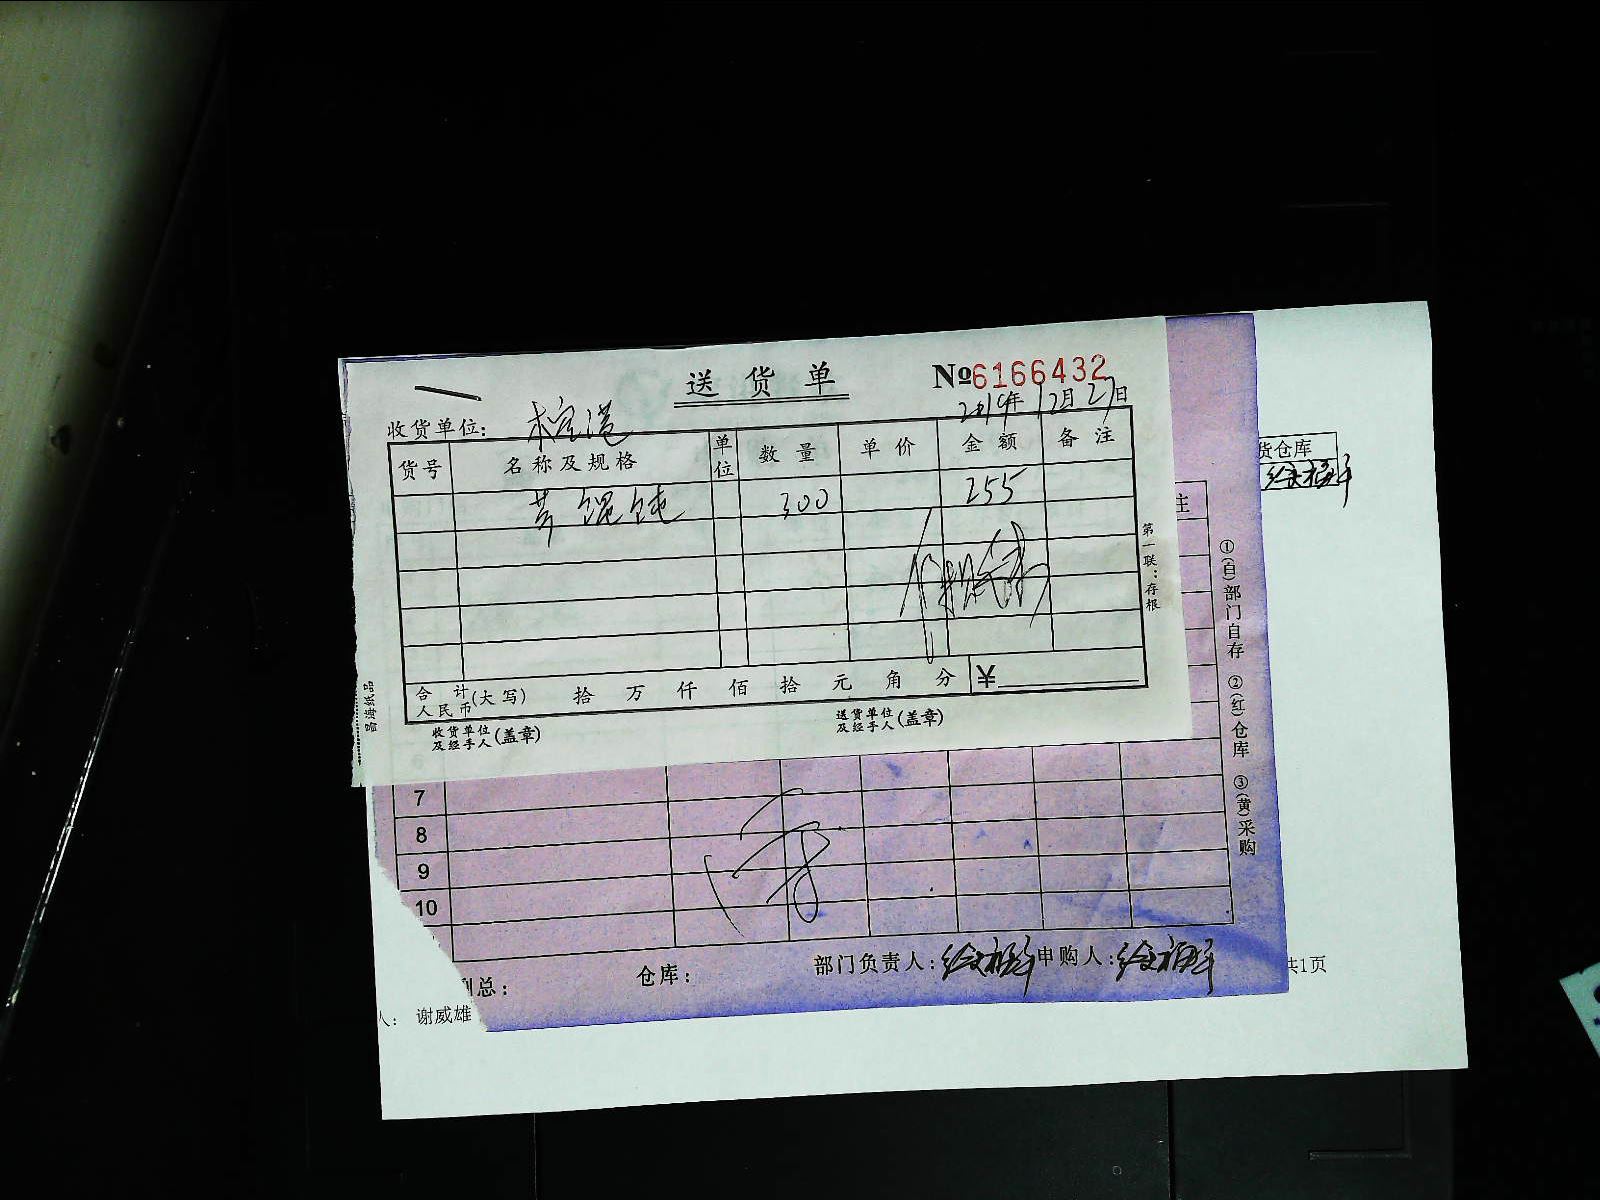 送货单 №6166432
2019年12月27日
收货单位:
货号 名称及规格 单位 数量 单价 金额 备注
芹馄饨 300 255
合计人民币(大写) 拾 万 仟 佰 拾 元 角 分 ¥
收货单位及经手人(盖章) 送货单位及经手人(盖章)
第一联:存根
货仓库
注
①(白)部门自存 ②(红)仓库 ③(黄)采购
7
8
9
10
副总: 仓库: 部门负责人: 申购人:
人: 谢威雄 共1页